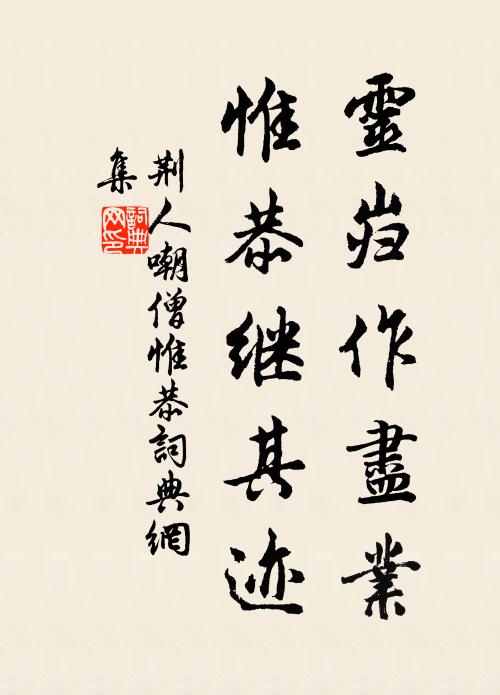 靈岿作盡業
惟恭继其迹
荆人嘲僧惟恭詞典網
集
詞典
网印